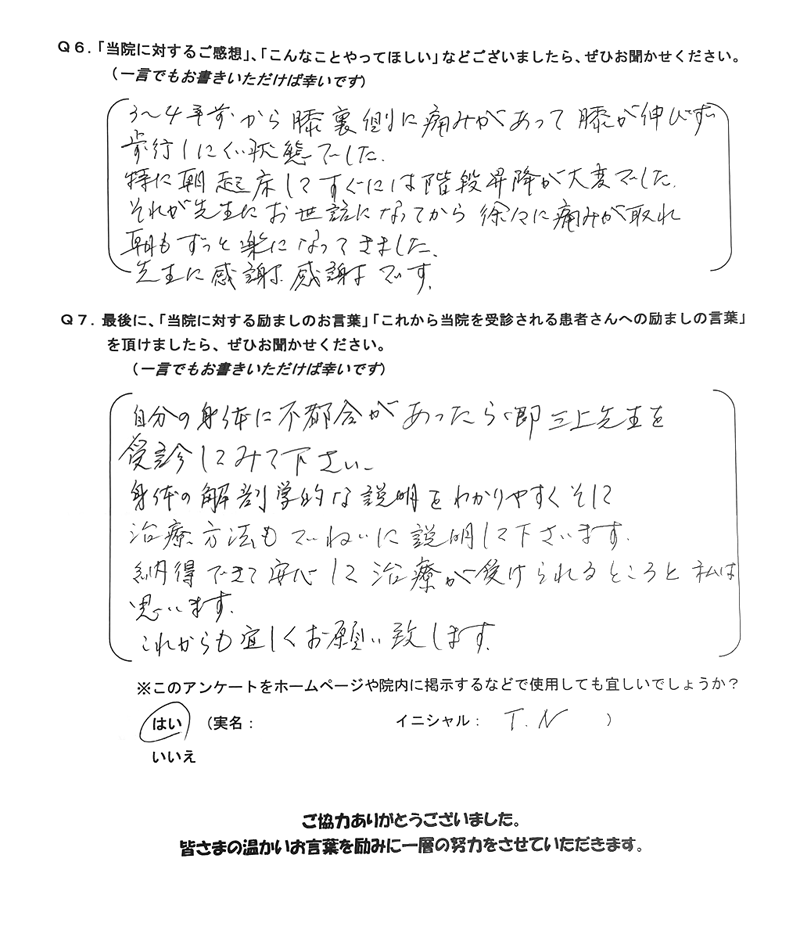 Q6.「当院に対するご感想」、「こんなことやってほしい」などございましたら、ぜひお聞かせください。
（一言でもお書きいただけば幸いです）
3〜4年前から膝裏側に痛みがあって膝が伸びず
歩行しにくい状態でした。
特に朝起床してすぐには階段昇降が大変でした。
それが先生にお世話になってから徐々に痛みが取れ
朝もずっと楽になってきました。
先生に感謝感謝です。
Q7.最後に、「当院に対する励ましのお言葉」「これから当院を受診される患者さんへの励ましの言葉」
を頂けましたら、ぜひお聞かせください。
（一言でもお書きいただけば幸いです）
自分の身体に不都合があったら即三上先生を
受診してみて下さい。
身体の解剖学的な説明をわかりやすくそして
治療方法もていねいに説明して下さいます。
納得できて安心して治療が受けられるところと私は
思います。
これからも宜しくお願い致します。
※このアンケートをホームページや院内に掲示するなどで使用しても宜しいでしょうか？
はい （実名： イニシャル： T.N ）
いいえ
ご協力ありがとうございました。
皆さまの温かいお言葉を励みに一層の努力をさせていただきます。